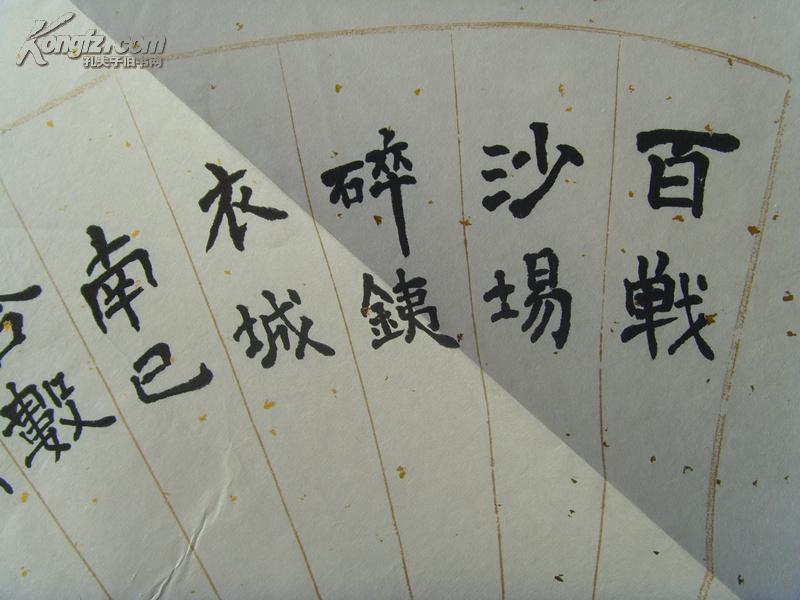 百戦
沙場
碎銕
衣城
南已
合數
Kongfz.com
孔夫子旧书网